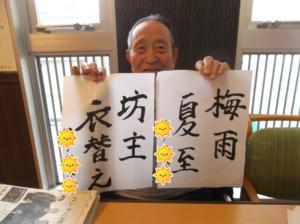 梅雨
夏至
坊主
衣替え